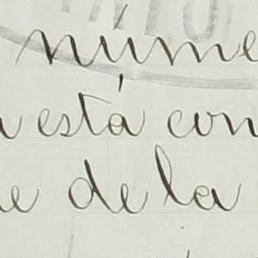 núme
está con
de la